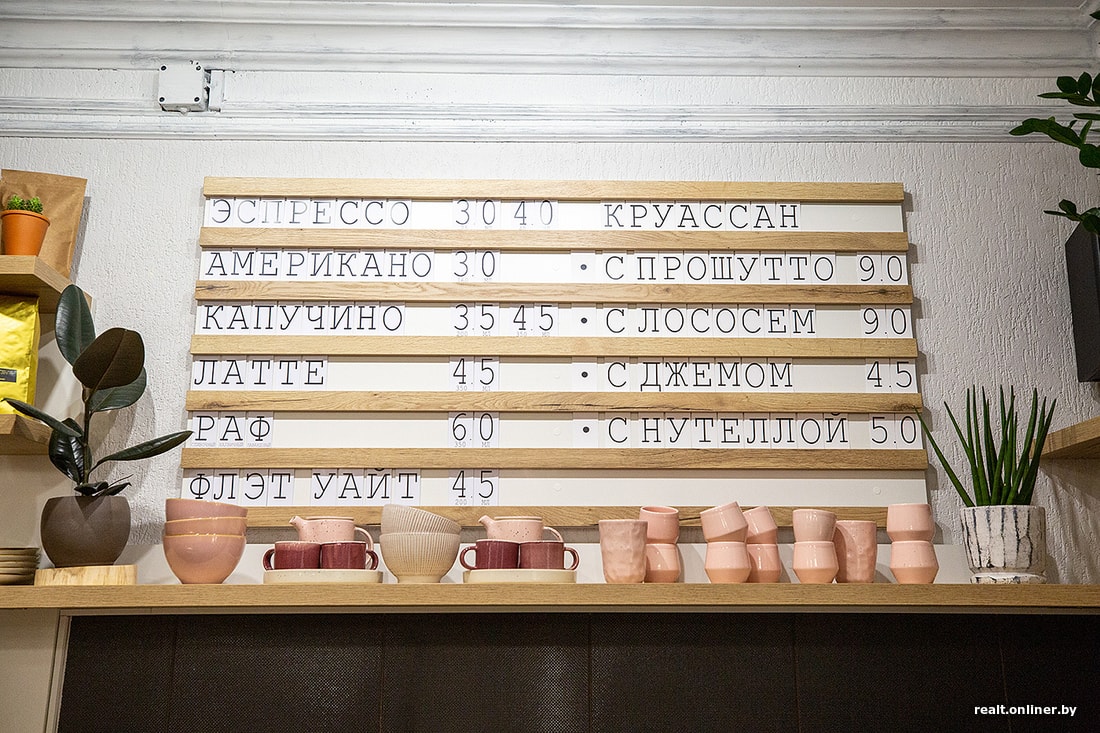 ЭСПРЕССО 3.0 4.0 КРУАССАН
АМЕРИКАНО 3.0 • С ПРОШУТТО 9.0
КАПУЧИНО 3.5 4.5 • С ЛОСОСЕМ 9.0
ЛАТТЕ 4.5 • С ДЖЕМОМ 4.5
350 МЛ
РАФ 6.0 • С НУТЕЛЛОЙ 5.0
350 МЛ
ФЛЭТ УАЙТ 4.5
200 МЛ
realt.onliner.by